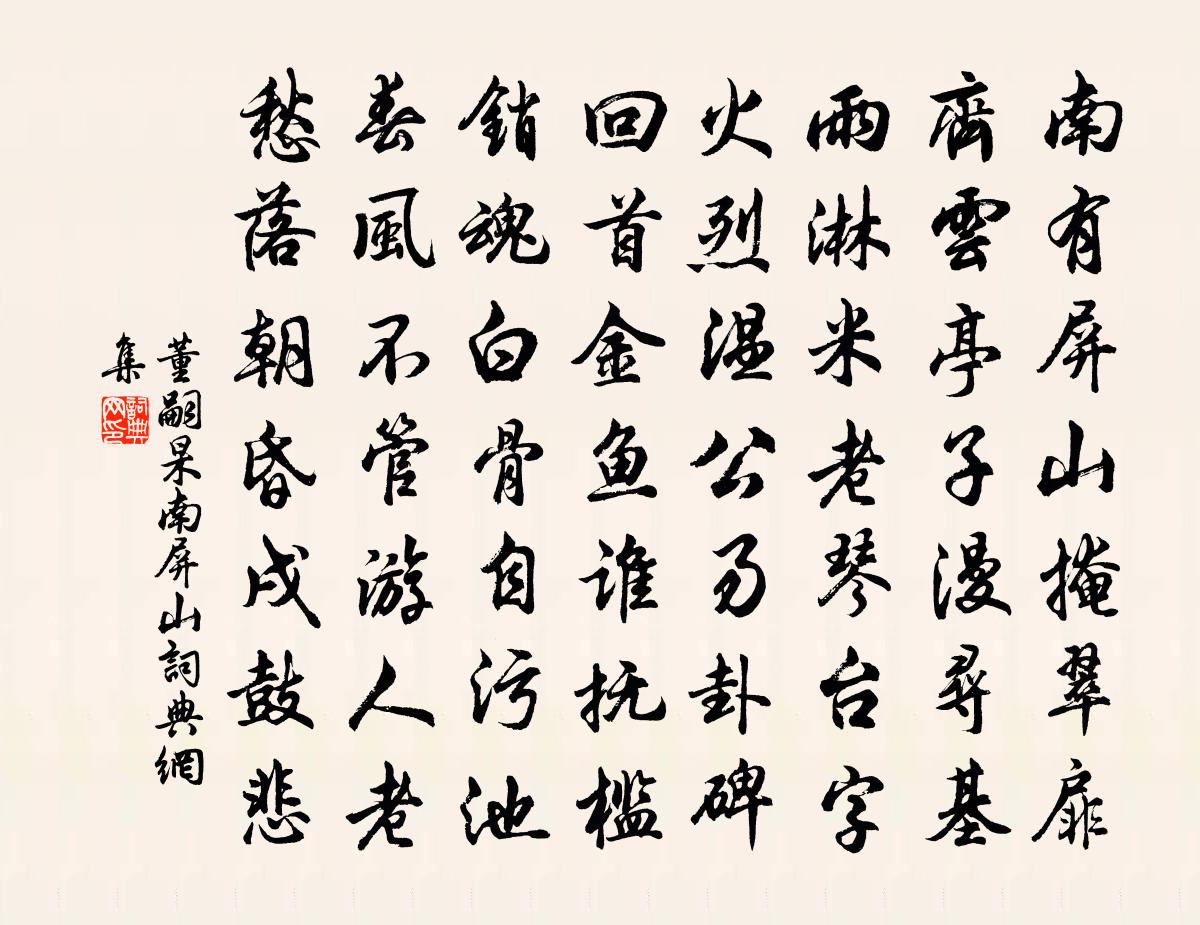 南有屏山掩翠扉
齊雲亭子漫尋基
雨淋米老琴台字
火烈温公易卦碑
回首金鱼誰抚檻
銷魂白骨自污池
春風不管游人老
愁落朝昏戍鼓悲
董嗣杲南屏山詞典網
集
詞典网印